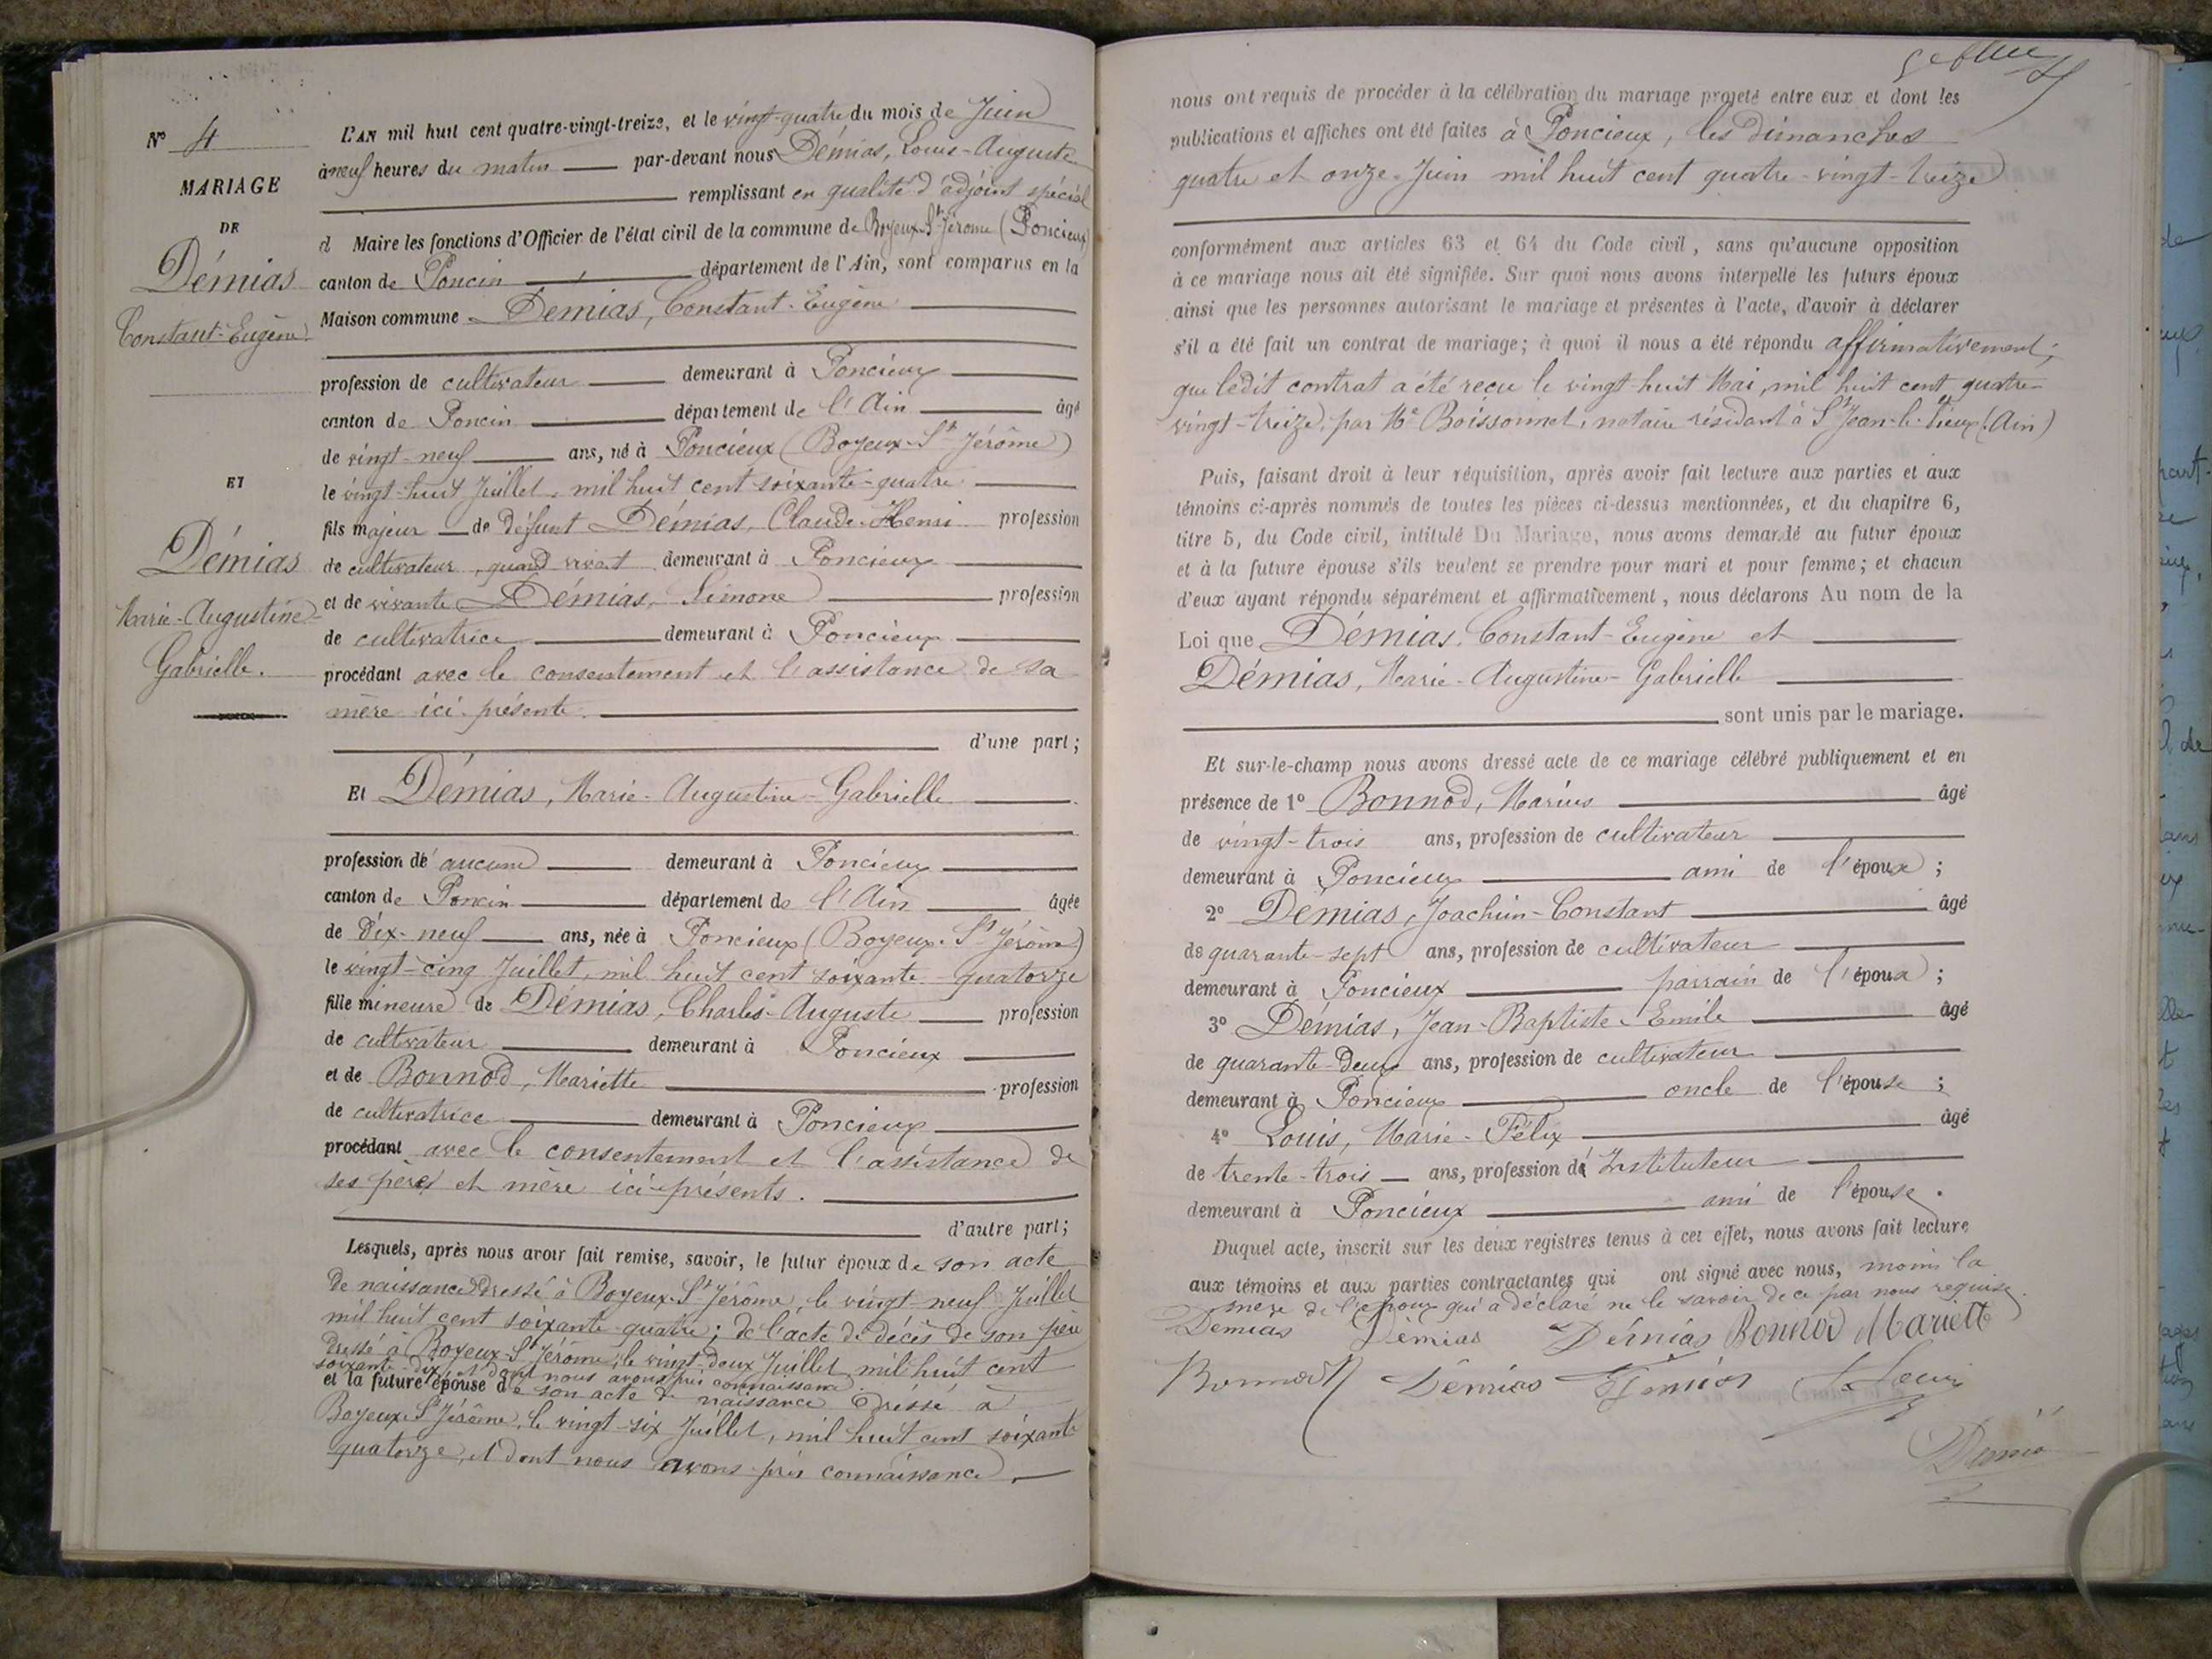 N° 4
MARIAGE
DE
Démias
Constant-Eugène
ET
Démias
Marie-Augustine-
Gabrielle.
L'AN mil huit cent quatre-vingt-treize, et le vingt-quatre du mois de Juin
à neuf heures du matin par-devant nous Démias, Louis-Auguste
remplissant en qualité d'adjoint spécial
d Maire les fonctions d'Officier de l'état civil de la commune de Boyeux-St-Jérôme (Poncieux)
canton de Poncin département de l'Ain, sont comparus en la
Maison commune Démias, Constant-Eugène
profession de cultivateur demeurant à Poncieux
canton de Poncin département de l'Ain âgé
de vingt-neuf ans, né à Poncieux (Boyeux-St-Jérôme)
le vingt-huit Juillet, mil huit cent soixante-quatre
fils majeur de défunt Démias, Claude-Henri profession
de cultivateur, quand vivait demeurant à Poncieux
et de vivante Démias, Simone profession
de cultivatrice demeurant à Poncieux
procédant avec le consentement et l'assistance de sa
mère ici présente.
d'une part;
Et Démias, Marie-Augustine-Gabrielle
profession de aucune demeurant à Poncieux
canton de Poncin département de l'Ain âgée
de dix-neuf ans, née à Poncieux (Boyeux-St-Jérôme)
le vingt-cinq Juillet, mil huit cent soixante-quatorze
fille mineure de Démias, Charles-Auguste profession
de cultivateur demeurant à Poncieux
et de Bonnod, Mariette profession
de cultivatrice demeurant à Poncieux
procédant avec le consentement et l'assistance de
ses père et mère ici-présents.
d'autre part;
Lesquels, après nous avoir fait remise, savoir, le futur époux de son acte
de naissance dressé à Boyeux-St-Jérôme, le vingt-neuf Juillet
mil huit cent soixante-quatre; de l'acte de décès de son père
dressé à Boyeux-St-Jérôme, le vingt-deux Juillet mil huit cent
soixante-dix, et dont nous avons pris connaissance
et la future épouse de son acte de naissance dressé à
Boyeux-St-Jérôme, le vingt-six Juillet, mil huit cent soixante
quatorze, et dont nous avons pris connaissance.
nous ont requis de procéder à la célébration du mariage projeté entre eux et dont les
publications et affiches ont été faites à Poncieux, les dimanches
quatre et onze Juin mil huit cent quatre-vingt-treize
conformément aux articles 63 et 64 du Code civil, sans qu'aucune opposition
à ce mariage nous ait été signifiée. Sur quoi nous avons interpellé les futurs époux
ainsi que les personnes autorisant le mariage et présentes à l'acte, d'avoir à déclarer
s'il a été fait un contrat de mariage; à quoi il nous a été répondu affirmativement;
que ledit contrat a été reçu le vingt-huit Mai, mil huit cent quatre-
vingt-treize, par Me Boissonnet, notaire résidant à St Jean-le-Vieux (Ain)
Puis, faisant droit à leur réquisition, après avoir fait lecture aux parties et aux
témoins ci-après nommés de toutes les pièces ci-dessus mentionnées, et du chapitre 6,
titre 5, du Code civil, intitulé Du Mariage, nous avons demandé au futur époux
et à la future épouse s'ils veulent se prendre pour mari et pour femme; et chacun
d'eux ayant répondu séparément et affirmativement, nous déclarons Au nom de la
Loi que Démias, Constant-Eugène et
Démias, Marie-Augustine-Gabrielle
sont unis par le mariage.
Et sur-le-champ nous avons dressé acte de ce mariage célébré publiquement et en
présence de 1° Bonnod, Marius âgé
de vingt-trois ans, profession de cultivateur
demeurant à Poncieux ami de l'époux;
2° Démias, Joachim-Constant âgé
de quarante-sept ans, profession de cultivateur
demeurant à Poncieux parrain de l'époux;
3° Démias, Jean-Baptiste-Emile âgé
de quarante-deux ans, profession de cultivateur
demeurant à Poncieux oncle de l'épouse;
4° Louis, Marie-Félix âgé
de trente-trois ans, profession de Instituteur
demeurant à Poncieux ami de l'épouse.
Duquel acte, inscrit sur les deux registres tenus à cet effet, nous avons fait lecture
aux témoins et aux parties contractantes qui ont signé avec nous, moins la
mère de l'époux qui a déclaré ne le savoir de ce par nous requise.
Démias Démias Démias Bonnod Mariett
Bonnod Démias Démias Louis
Démias